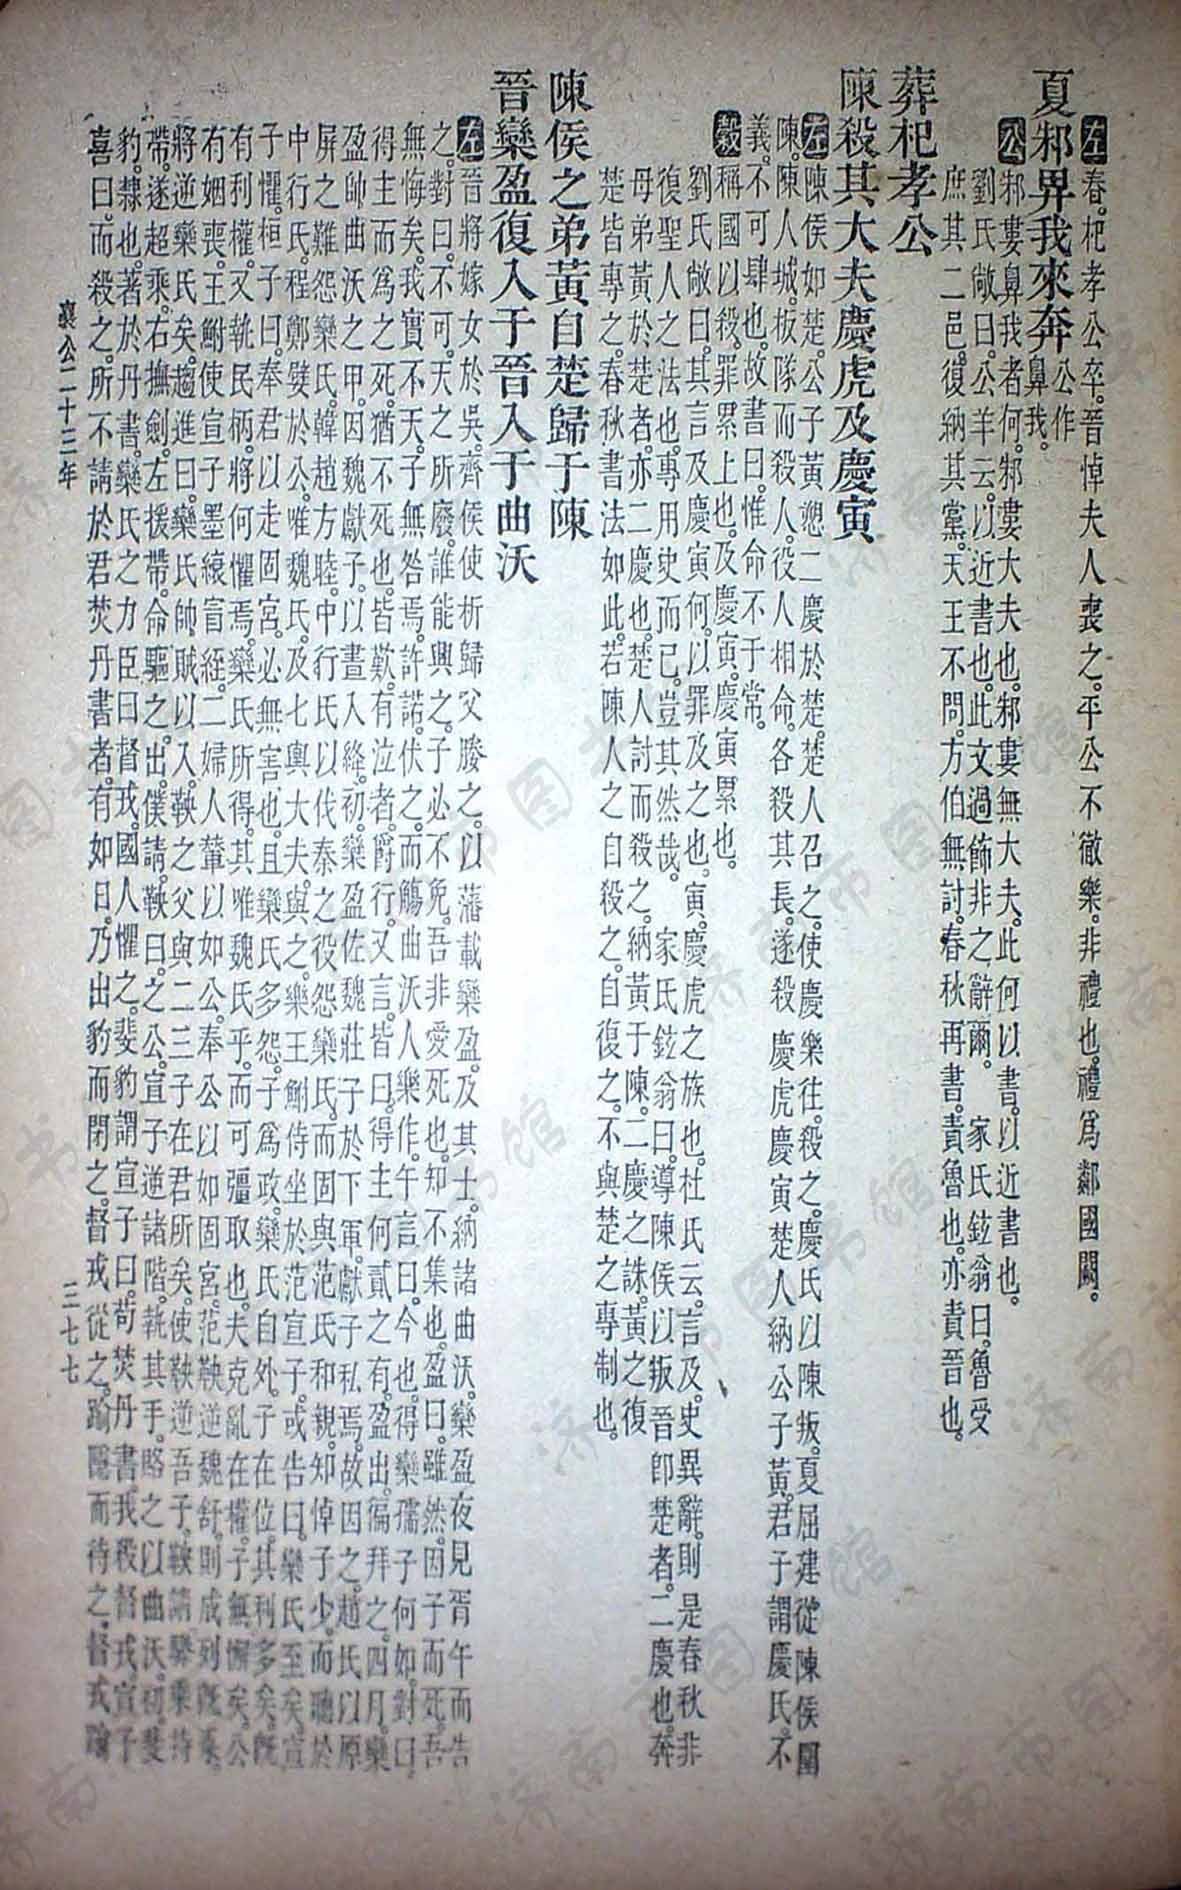 左春。杞孝公卒。晉悼夫人喪之。平公不徹樂。非禮也。禮爲鄰國闕。
夏邾畀我來奔公作鼻我。
公邾婁鼻我者何。邾婁大夫也。邾婁無大夫。此何以書。以近書也。
劉氏敞曰。公羊云。以近書也。此文過飾非之辭爾。　家氏鉉翁曰。魯受
庶其二邑。復納其黨。天王不問。方伯無討。春秋再書。責魯也。亦責晉也。
葬杞孝公
陳殺其大夫慶虎及慶寅
左陳侯如楚。公子黃愬二慶於楚。楚人召之。使慶樂往。殺之。慶氏以陳叛。夏屈建從陳侯圍
陳。陳人城。板隊而殺人。役人相命。各殺其長。遂殺慶虎慶寅楚人納公子黃。君子謂慶氏。不
義。不可肆也。故書曰。惟命不于常。
穀稱國以殺。罪累上也。及慶寅。慶寅累也。
劉氏敞曰。其言及慶寅何。以罪及之也。寅。慶虎之族也。杜氏云。言及。史異辭。則是春秋非
復聖人之法也。專用史而已。豈其然哉。　家氏鉉翁曰。導陳侯以叛晉卽楚者。二慶也。奔
母弟黃於楚者。亦二慶也。楚人討而殺之。納黃于陳。二慶之誅。黃之復
楚皆專之。春秋書法如此。若陳人之自殺之。自復之。不與楚之專制也。
陳侯之弟黃自楚歸于陳
晉欒盈復入于晉入于曲沃
左晉將嫁女於吳。齊侯使析歸父媵之。以藩載欒盈。及其士。納諸曲沃。欒盈夜見胥午而告
之。對曰。不可。天之所廢。誰能興之。子必不免。吾非愛死也。知不集也。盈曰。雖然。因子而死。吾
無悔矣。我實不天。子無咎焉。許諾。伏之。而觴曲沃人。樂作。午言曰。今也得欒孺子何如。對曰。
得主而爲之死。猶不死也。皆歎。有泣者。爵行。又言。皆曰。得主何貳之有。盈出。徧拜之。四月。欒
盈帥曲沃之甲。因魏獻子。以晝入絳。初。欒盈佐魏莊子於下軍。獻子私焉。故因之。趙氏以原
屏之難怨欒氏。韓趙方睦。中行氏以伐秦之役怨欒氏。而固與范氏和親。知悼子少。而聽於
中行氏。程鄭嬖於公。唯魏氏。及七輿大夫。與之。樂王鮒侍坐於范宣子。或告曰。欒氏至矣。宣
子懼。桓子曰。奉君以走固宮。必無害也。且欒氏多怨。子爲政。欒氏自外。子在位。其利多矣。旣
有利權。又執民柄。將何懼焉。欒氏所得。其唯魏氏乎。而可彊取也。夫克亂在權。子無懈矣。公
有姻喪。王鮒使宣子墨縗冒絰。二婦人輦以如公。奉公以如固宮。范鞅逆魏舒。則成列旣乘。
將逆欒氏矣。趨進曰。欒氏帥賊以入。鞅之父與二三子在君所矣。使鞅逆吾子。鞅請驂乘持
帶。遂超乘。右撫劍。左援帶。命驅之出。僕請。鞅曰。之公。宣子逆諸階。執其手。賂之以曲沃。初。斐
豹。隸也。著於丹書。欒氏之力臣曰督戎。國人懼之。斐豹謂宣子曰。苟焚丹書。我殺督戎。宣子
喜曰。而殺之。所不請於君焚丹書者。有如日。乃出豹而閉之。督戎從之。踰隱而待之。督戎踰
襄公二十三年　三七七